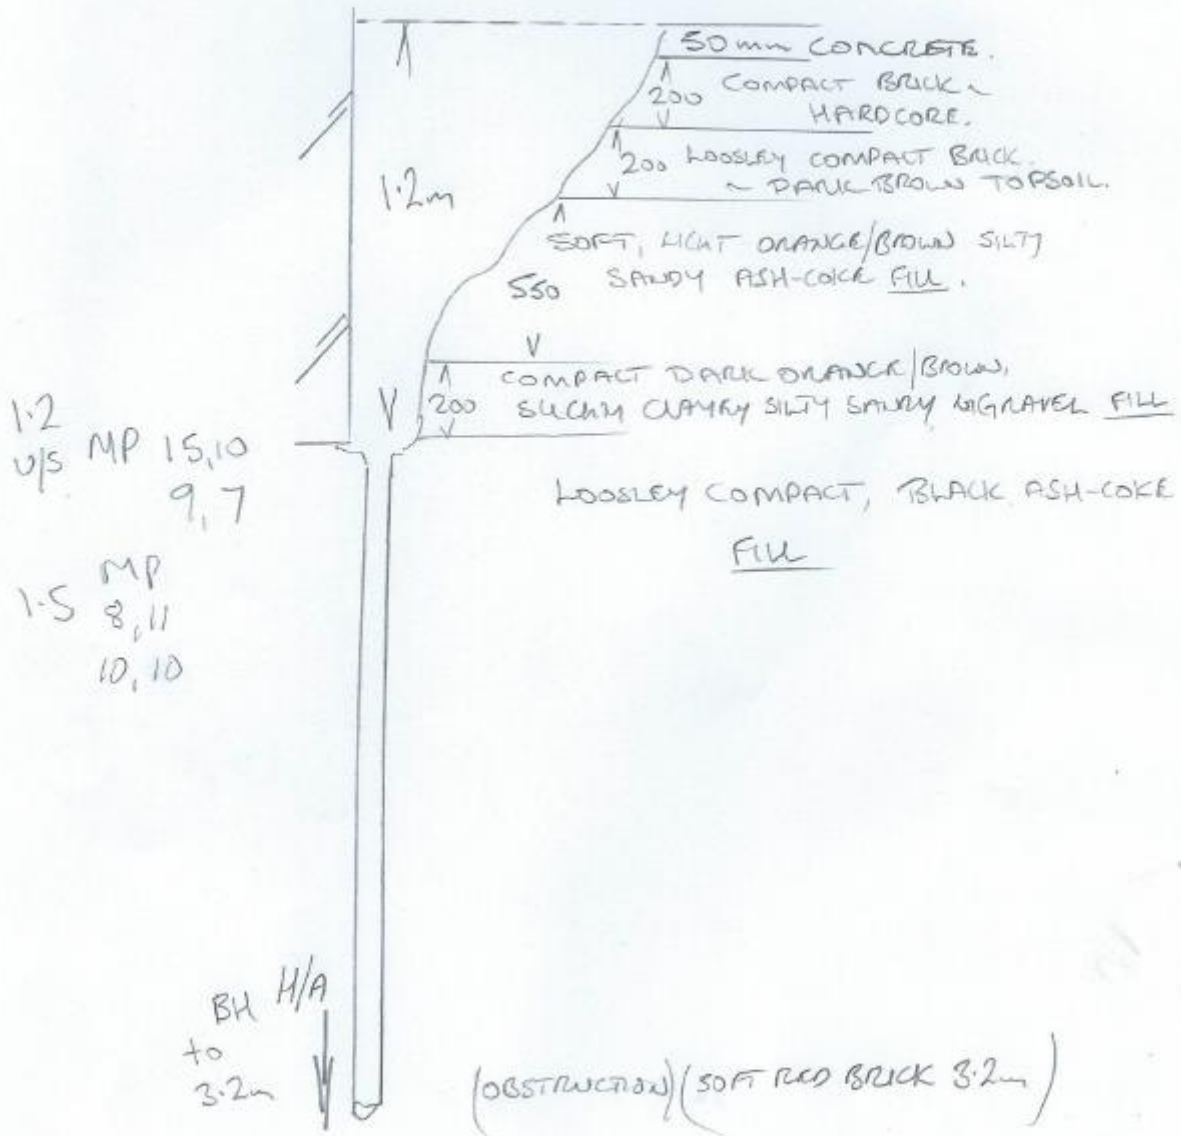 50mm CONCRETE.
200 COMPACT BRICK ~
HARDCORE.
200 LOOSLEY COMPACT BRICK.
~ DARK BROWN TOPSOIL.
1.2m
SOFT, LIGHT ORANGE/BROWN SILTY
SANDY ASH-COKE FILL.
550
COMPACT DARK ORANGE/BROWN,
200 CLAYEY SILTY SANDY GRAVEL FILL
1.2
U/S MP 15,10
9,7
LOOSLEY COMPACT, BLACK ASH-COKE
FILL
1.5 MP
8,11
10,10
BH H/A
to
3.2m
(OBSTRUCTION) (SOFT RED BRICK 3.2m)